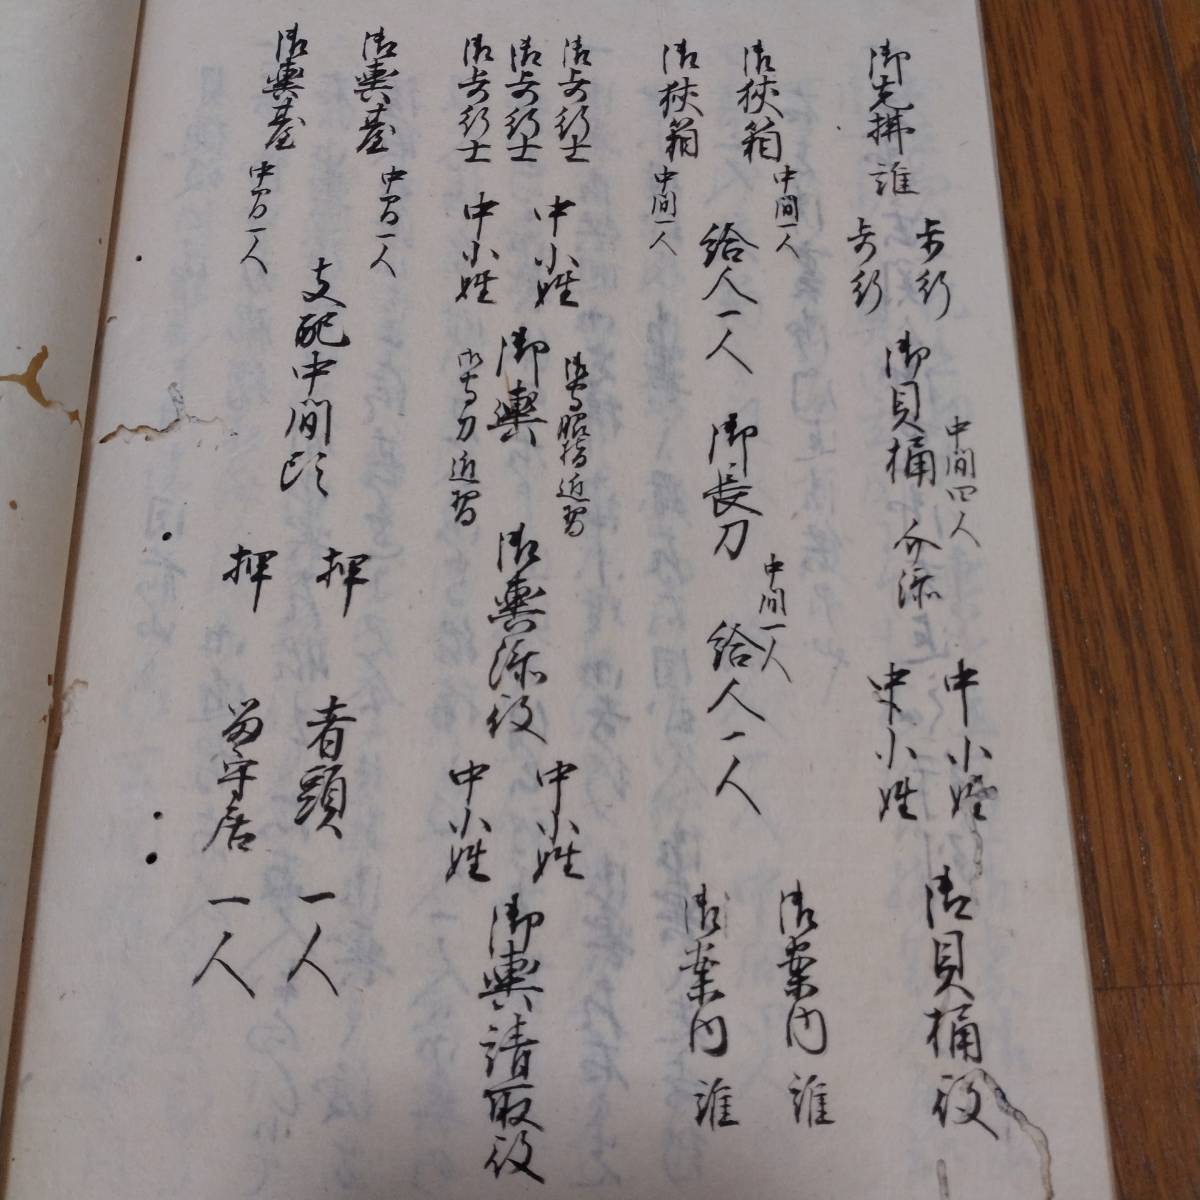 御先払 誰
歩行
歩行
御貝桶 中間四人
介添
中小姓
中小姓
御貝桶役
御狭箱 中間一人
御狭箱 中間一人
給人一人
御長刀 中間一人
給人一人
御案内 誰
御案内 誰
御歩行士
御歩行士
御歩行士
中小姓
中小姓
御輿
近習
御刀 近習
御輿添役
中小姓
中小姓
御輿請取役
御輿台 中間一人
御輿台 中間一人
支配中間頭
押
押
者頭 一人
留守居 一人